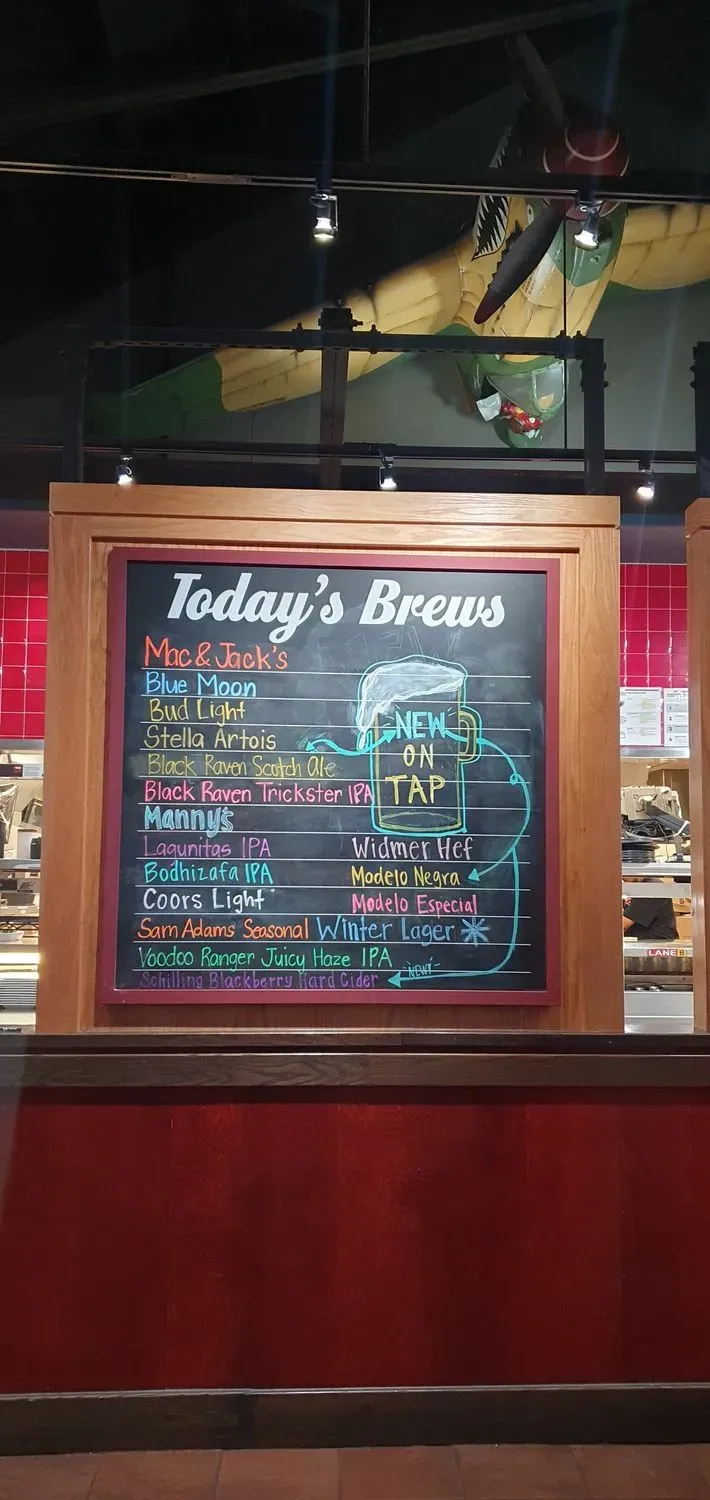 Today's Brews
Mac & Jack's
Blue Moon
Bud Light
Stella Artois
Black Raven Scotch Ale
Black Raven Trickster IPA
Manny's
Lagunitas IPA
Bodhizafa IPA
Coors Light
Sam Adams Seasonal Winter Lager
Voodoo Ranger Juicy Haze IPA
Schilling Blackberry Hard Cider
NEW
ON
TAP
Widmer Hef
Modelo Negra
Modelo Especial
NEW!
LANE B